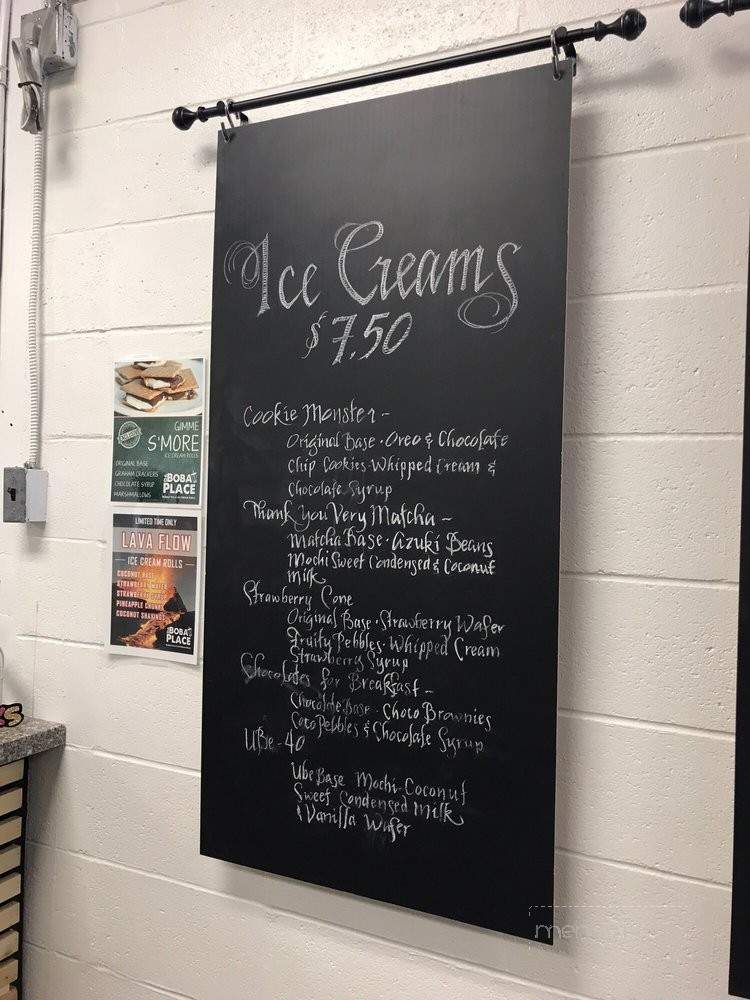 Ice Creams
$7.50
Cookie Monster -
Original Base · Oreo & Chocolate
Chip Cookies · Whipped Cream &
Chocolate Syrup
Thank You Very Matcha -
Matcha Base · Azuki Beans
Mochi Sweet Condensed & Coconut
Milk
Strawberry Cone
Original Base · Strawberry Wafer
Fruity Pebbles · Whipped Cream
Strawberry Syrup
Chocolates for Breakfast -
Chocolate Base · Choco Brownies
Coco Pebbles & Chocolate Syrup
UBe-40
Ube Base Mochi-Coconut
Sweet Condensed Milk
& Vanilla Wafer
GIMME
S'MORE
ICE CREAM ROLLS
ORIGINAL BASE
GRAHAM CRACKERS
CHOCOLATE SYRUP
MARSHMALLOWS
BOBA
PLACE
LIMITED TIME ONLY
LAVA FLOW
ICE CREAM ROLLS
COCONUT BASE
STRAWBERRY WAFER
STRAWBERRY SYRUP
PINEAPPLE CHUNKS
COCONUT SHAVINGS
BOBA
PLACE